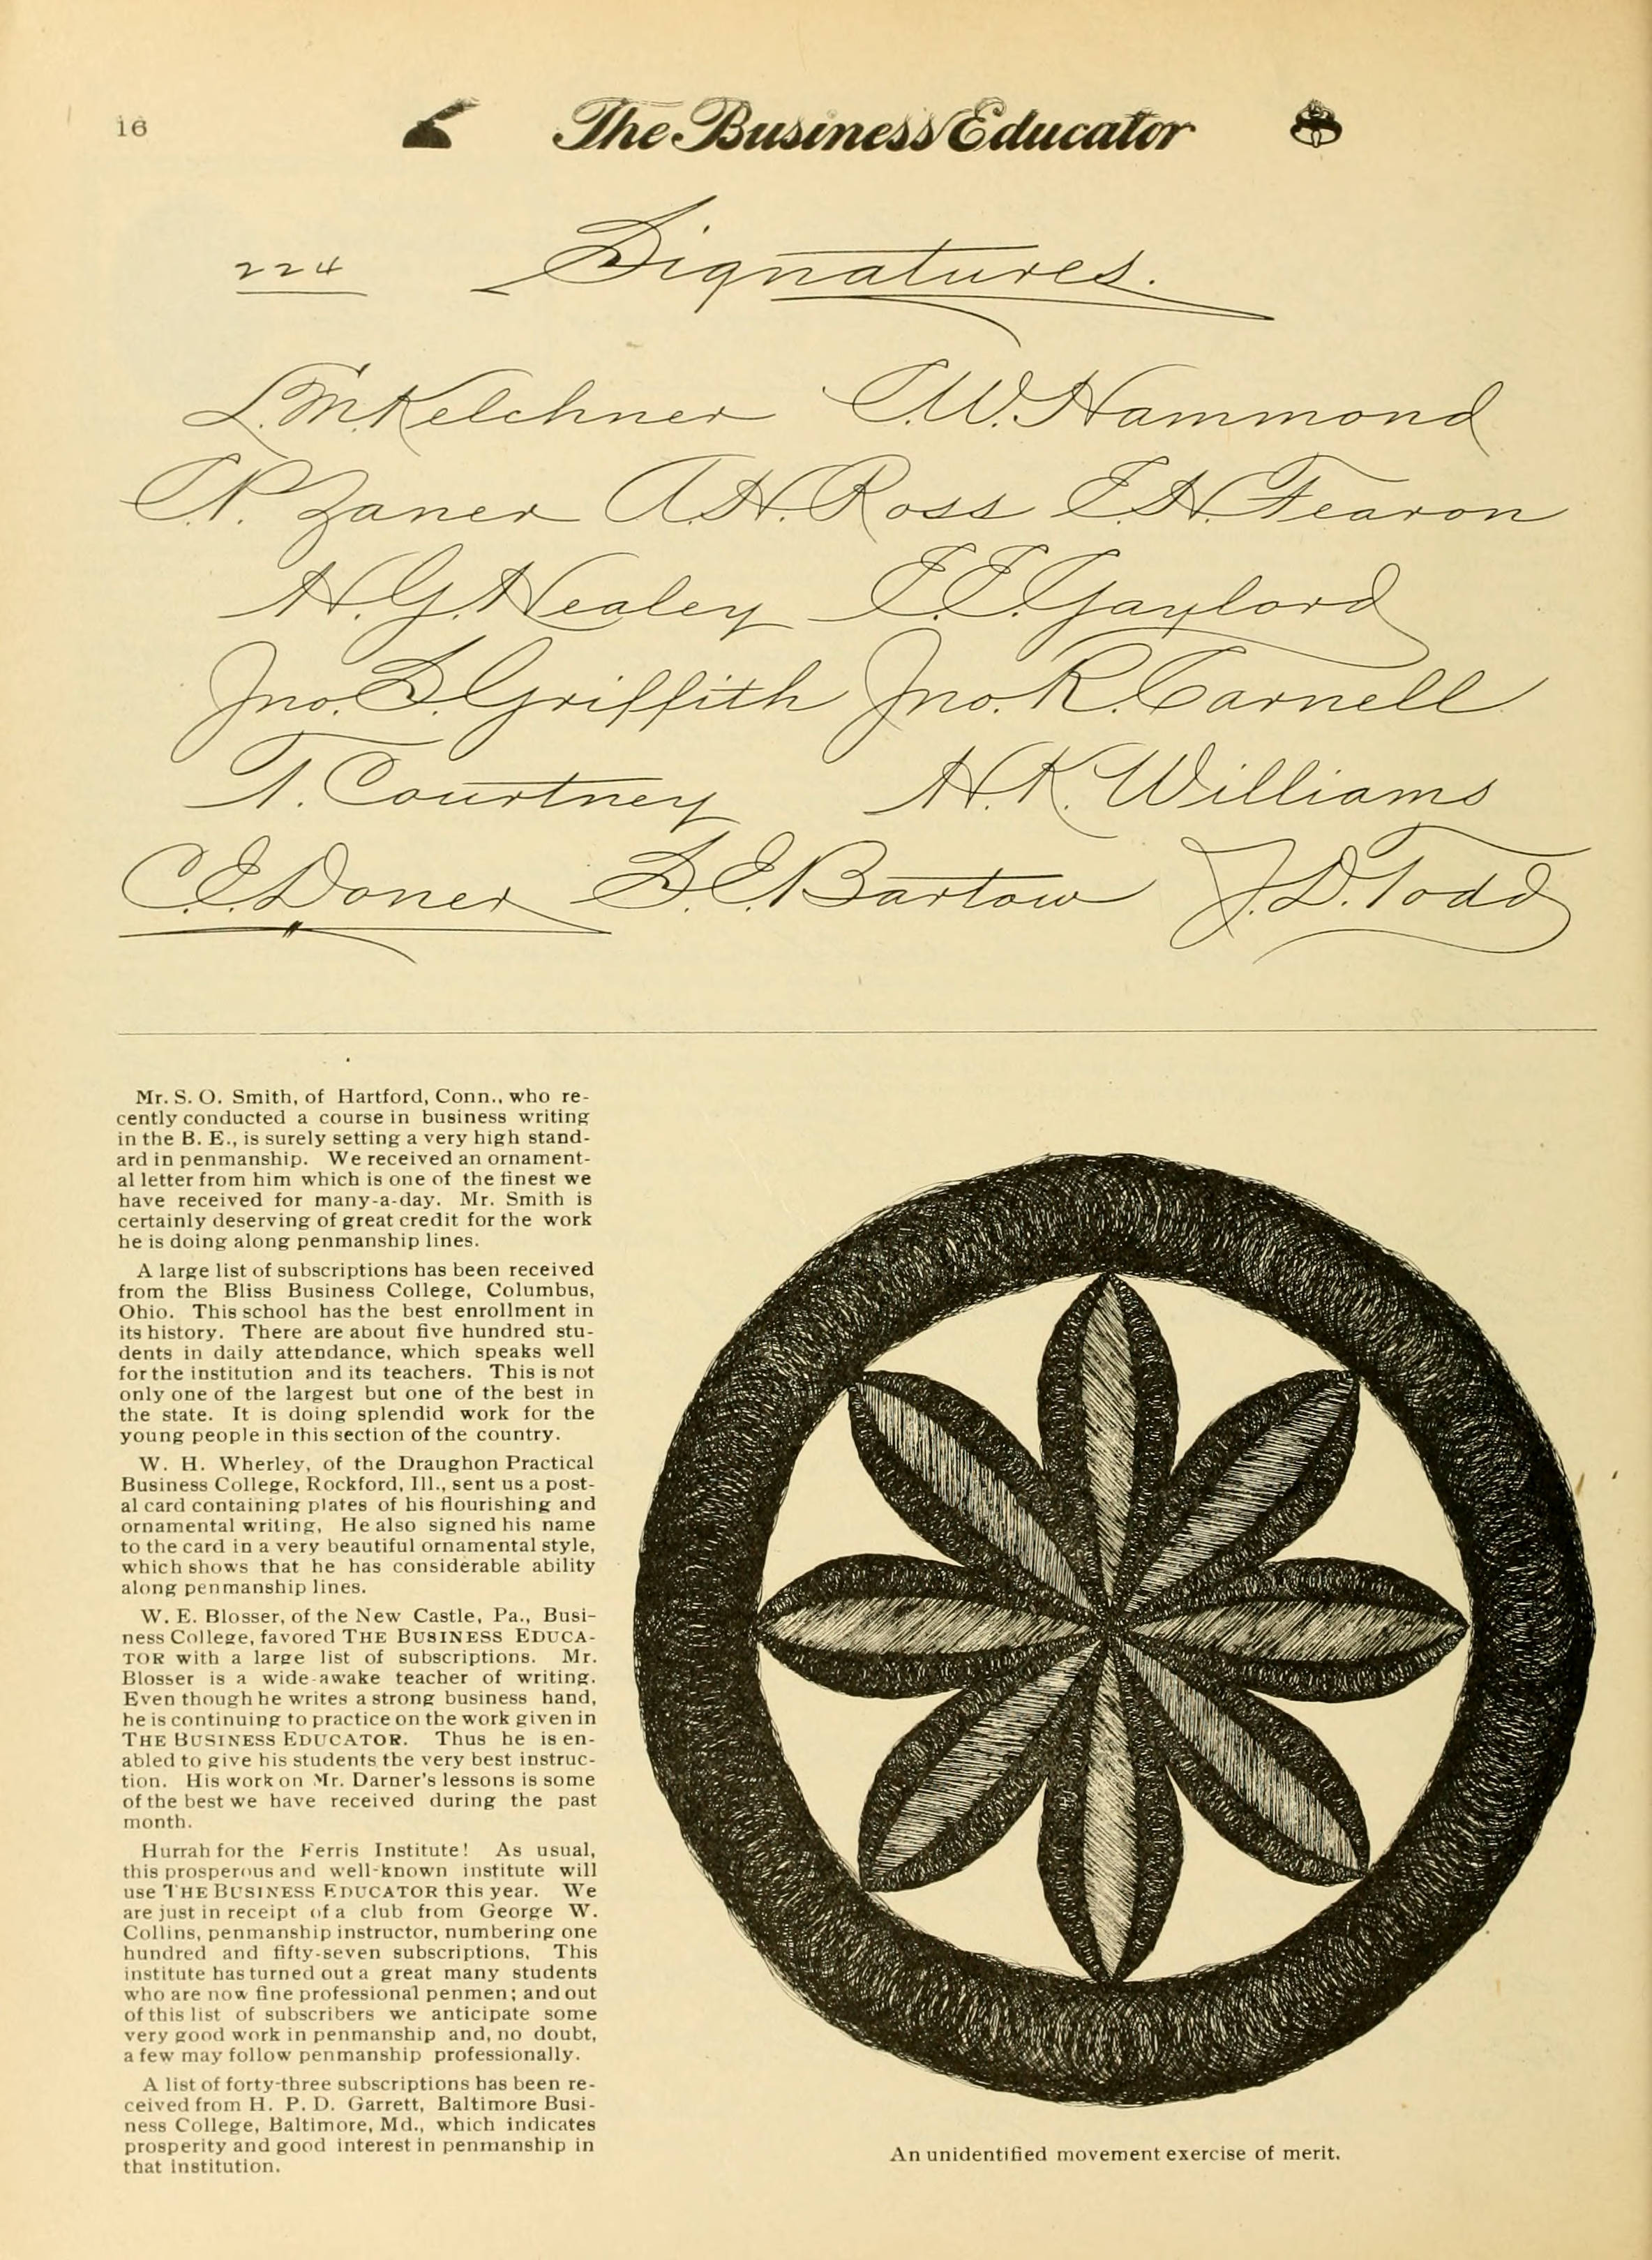 16
The Business Educator
224
Signatures.
L.M. Kelchner C.W. Hammond
C.P. Zaner A.H. Ross E.H. Fearon
H.G. Healey E.E. Gaylord
Jno. S. Griffith Jno. R. Carnell
F. Courtney H.K. Williams
C.E. Doner S.E. Bartow J.D. Todd
Mr. S. O. Smith, of Hartford, Conn., who re-
cently conducted a course in business writing
in the B. E., is surely setting a very high stand-
ard in penmanship. We received an ornament-
al letter from him which is one of the finest we
have received for many-a-day. Mr. Smith is
certainly deserving of great credit for the work
he is doing along penmanship lines.
A large list of subscriptions has been received
from the Bliss Business College, Columbus,
Ohio. This school has the best enrollment in
its history. There are about five hundred stu-
dents in daily attendance, which speaks well
for the institution and its teachers. This is not
only one of the largest but one of the best in
the state. It is doing splendid work for the
young people in this section of the country.
W. H. Wherley, of the Draughon Practical
Business College, Rockford, Ill., sent us a post-
al card containing plates of his flourishing and
ornamental writing, He also signed his name
to the card in a very beautiful ornamental style,
which shows that he has considerable ability
along penmanship lines.
W. E. Blosser, of the New Castle, Pa., Busi-
ness College, favored THE BUSINESS EDUCA-
TOR with a large list of subscriptions. Mr.
Blosser is a wide-awake teacher of writing.
Even though he writes a strong business hand,
he is continuing to practice on the work given in
THE BUSINESS EDUCATOR. Thus he is en-
abled to give his students the very best instruc-
tion. His work on Mr. Darner's lessons is some
of the best we have received during the past
month.
Hurrah for the Ferris Institute! As usual,
this prosperous and well-known institute will
use THE BUSINESS EDUCATOR this year. We
are just in receipt of a club from George W.
Collins, penmanship instructor, numbering one
hundred and fifty-seven subscriptions, This
institute has turned out a great many students
who are now fine professional penmen; and out
of this list of subscribers we anticipate some
very good work in penmanship and, no doubt,
a few may follow penmanship professionally.
A list of forty-three subscriptions has been re-
ceived from H. P. D. Garrett, Baltimore Busi-
ness College, Baltimore, Md., which indicates
prosperity and good interest in penmanship in
that institution.
An unidentified movement exercise of merit.